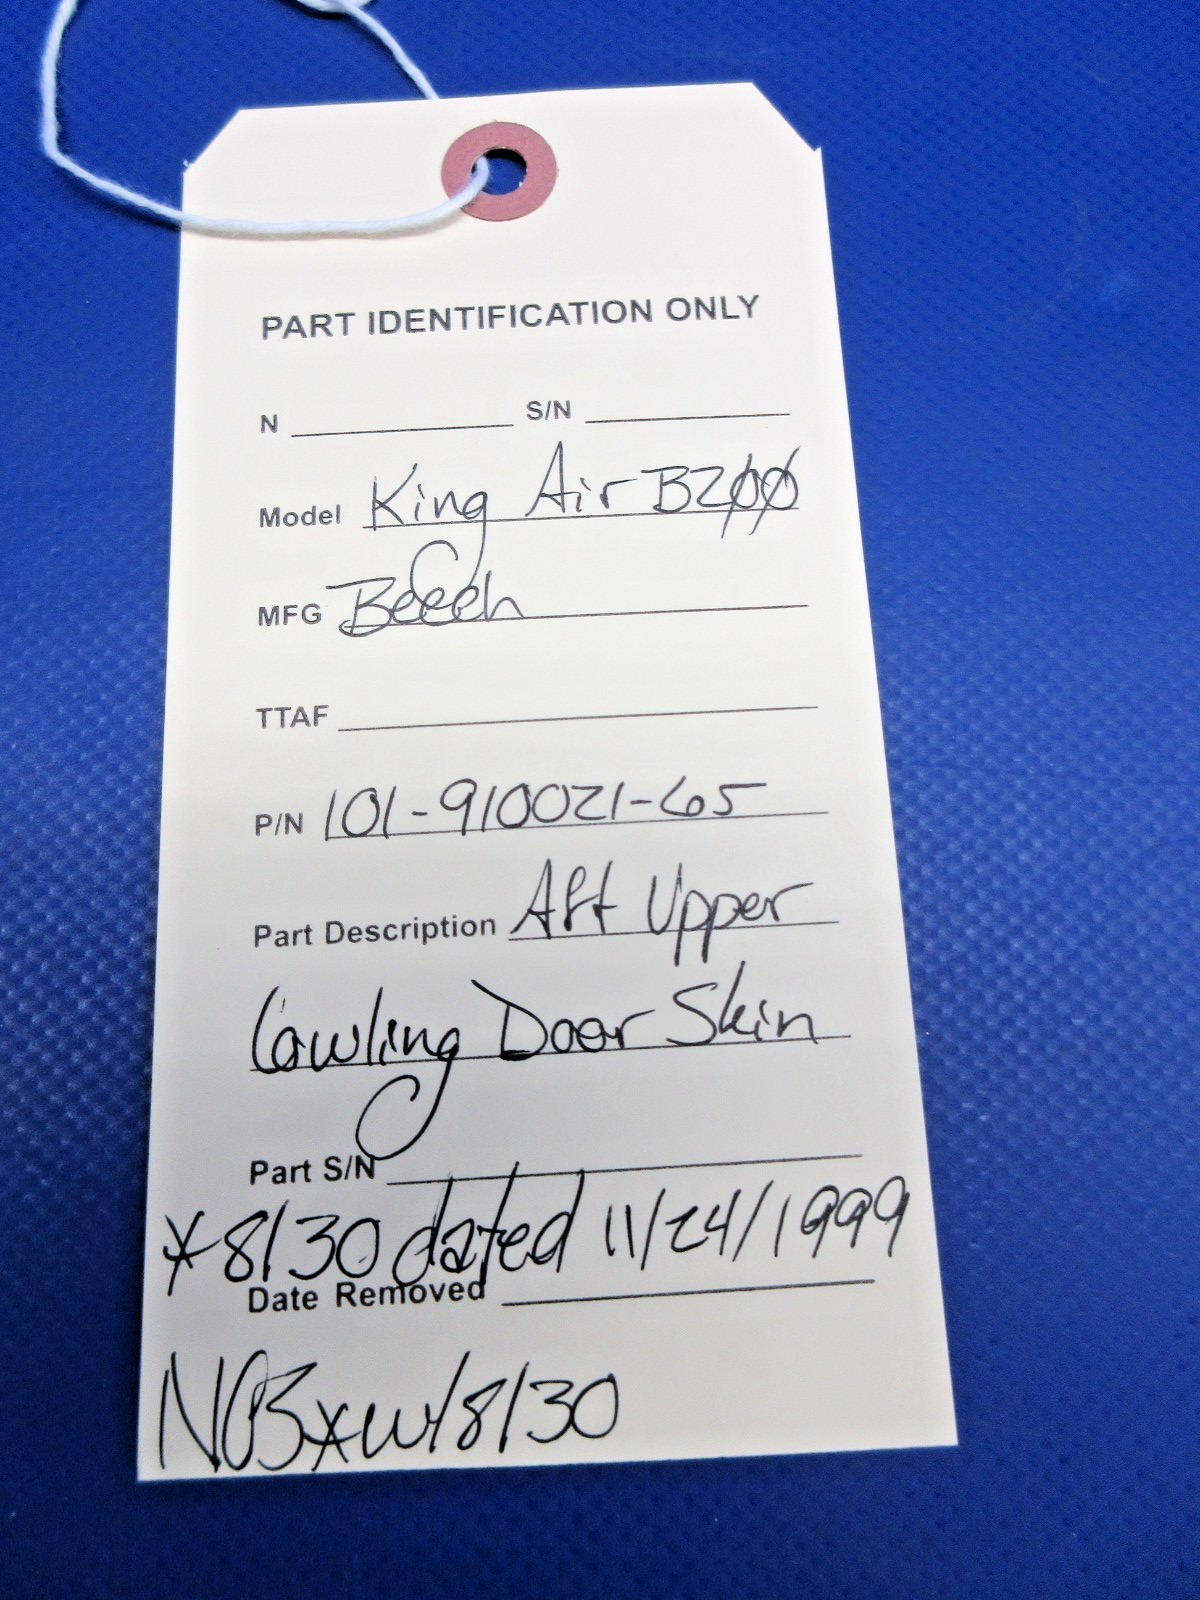 PART IDENTIFICATION ONLY
N S/N
Model King Air B200
MFG Beech
TTAF
P/N 101-910021-65
Part Description Aft Upper
Cowling Door Skin
Part S/N
*8130 dated 11/24/1999
Date Removed
NOS*w/8130